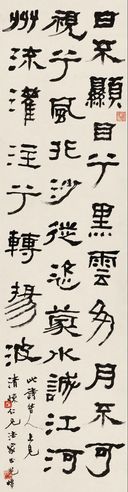 日不顯目兮黑雲多月不可
視兮風非沙從恣蒙水誠江河
州流灌注兮轉揚波
此詩昔人
仁兄法家